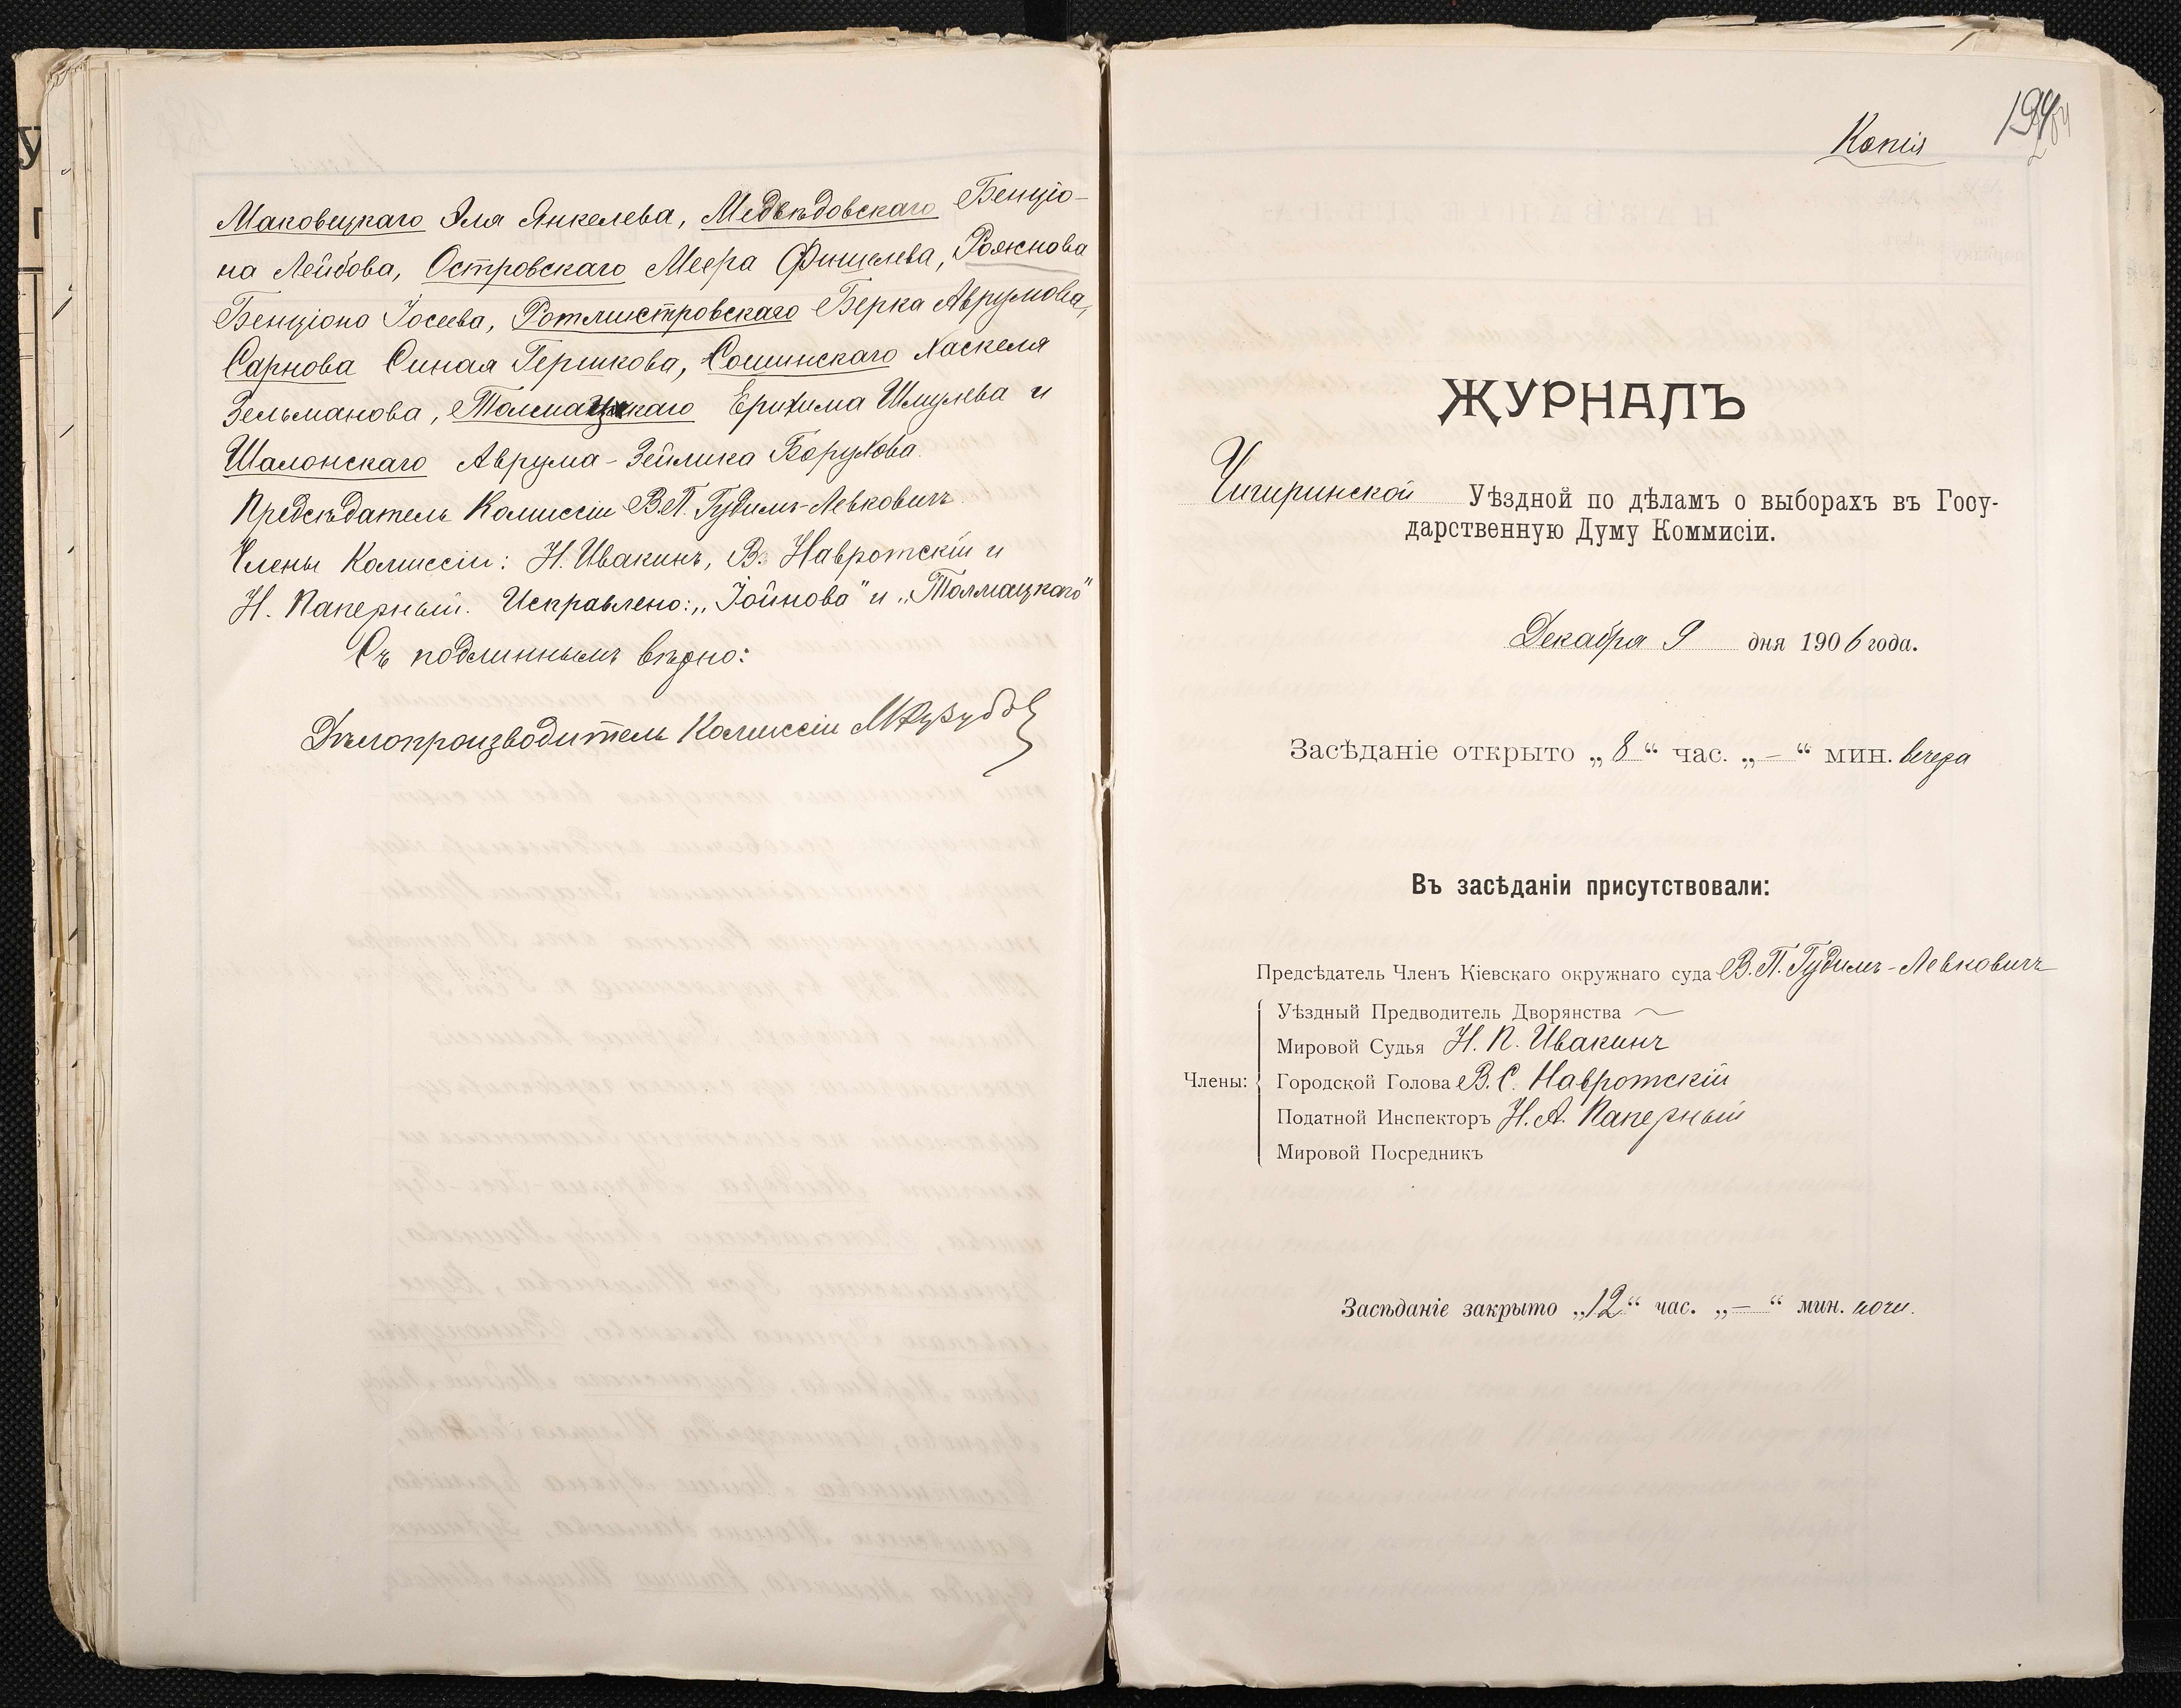 Маковецкаго Эля Янкелева, Медвѣдовскаго Бенціо-
на Лейбова, Островскаго Меера Фишелева, Рояснова
Бенціона Іосева, Ротмистровскаго Берка Аврумова,
Сарнова Синая Гершкова, Сошинскаго Хаскеля
Зельманова, Толмацкаго Ерихима Шмулева и
Шалонскаго Аврума-Зейлика Борухова.
Предсѣдатель Комиссіи В.П. Гудимъ-Левковичъ
Члены Комиссіи: Н. Ивакинъ, В. Навротскій и
Н. Паперный. Исправлено: „Іойнова" и „Толмацкаго"
Съ подлиннымъ вѣрно:
Дѣлопроизводитель Комиссіи
Копія
194
ЖУРНАЛЪ
Чигиринской Уѣздной по дѣламъ о выборахъ въ Госу-
дарственную Думу Коммисіи.
Декабря 9 дня 1906 года.
Засѣданіе открыто „8“ час. „—“ мин. вечера
Въ засѣданіи присутствовали:
Предсѣдатель Членъ Кіевскаго окружнаго суда В. П. Гудимъ-Левковичъ
Уѣздный Предводитель Дворянства —
Мировой Судья Н. П. Ивакинъ
Члены: Городской Голова В. С. Навротскій
Податной Инспекторъ Н. А. Паперный
Мировой Посредникъ
Засѣданіе закрыто „12“ час. „—“ мин. ночи.